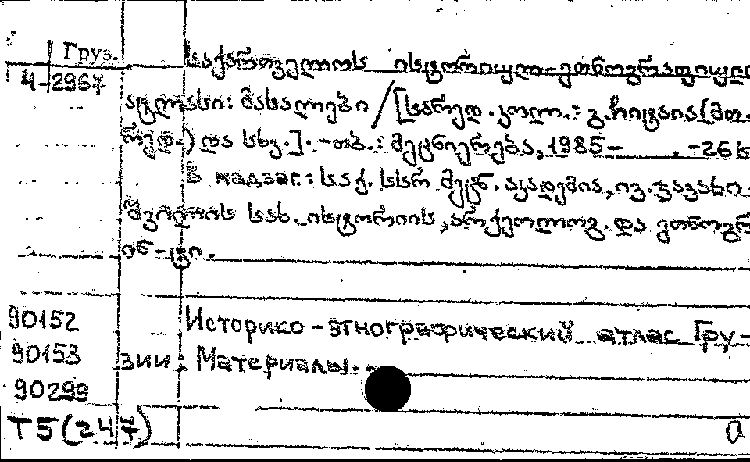 Груз.
4-2967
საქართველოს ისტორიულ-ეთნოგრაფიული
ატლასი: მასალები / [სარედ. კოლ.: გ. ჩიტაია (მთ.
რედ.) და სხვ.]. -თბ.: მეცნიერება, 1985- . -26 სმ
В надзаг.: საქ. სსრ მეცნ. აკადემია, ივ. ჯავახი-
შვილის სახ. ისტორიის, არქეოლოგ. და ეთნოგრ.
ინ-ტი.
90152 Историко-этнографический атлас Гру-
90153 зии: Материалы.
90299
Т5(247) а